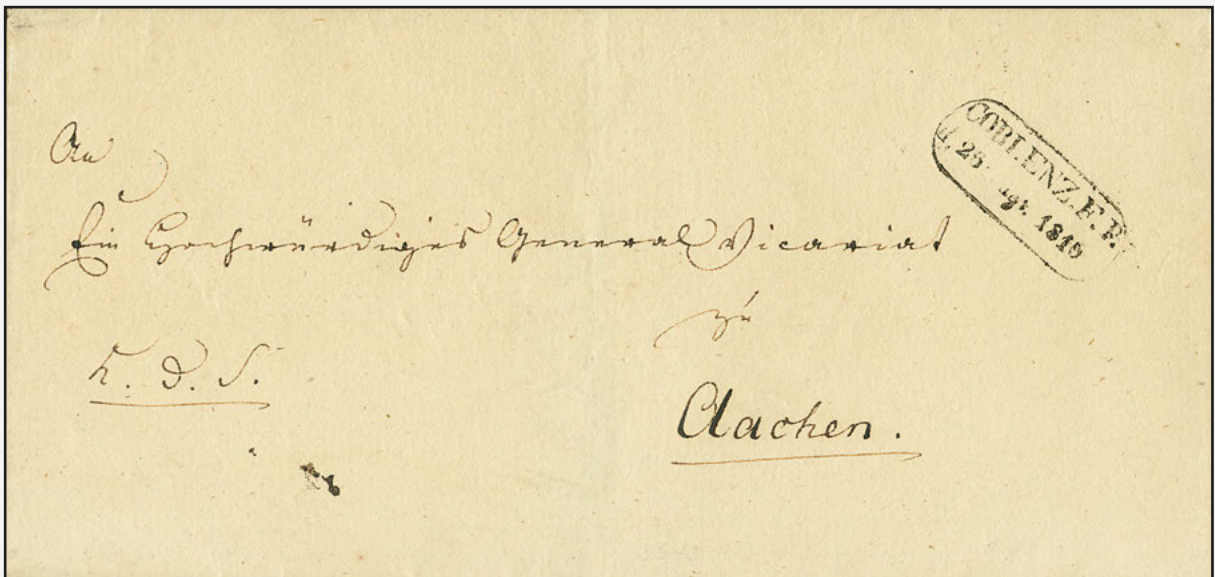 An
Ein Hochwürdiges General Vicariat
zu
Aachen.
COBLENZ. F. P.
d. 23